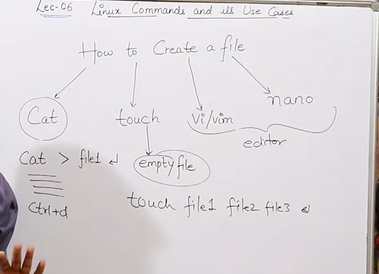 Lec-06 Linux Commands and its Use Cases
How to Create a file
Cat touch vi/vim nano
editor
Cat > file1 ↲ empty file
Ctrl+d
touch file1 file2 file3 ↲